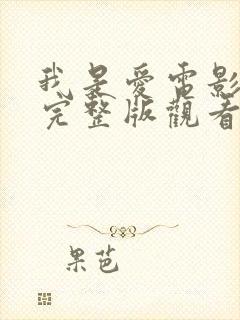 我是愛電影
完整版觀看
果芭